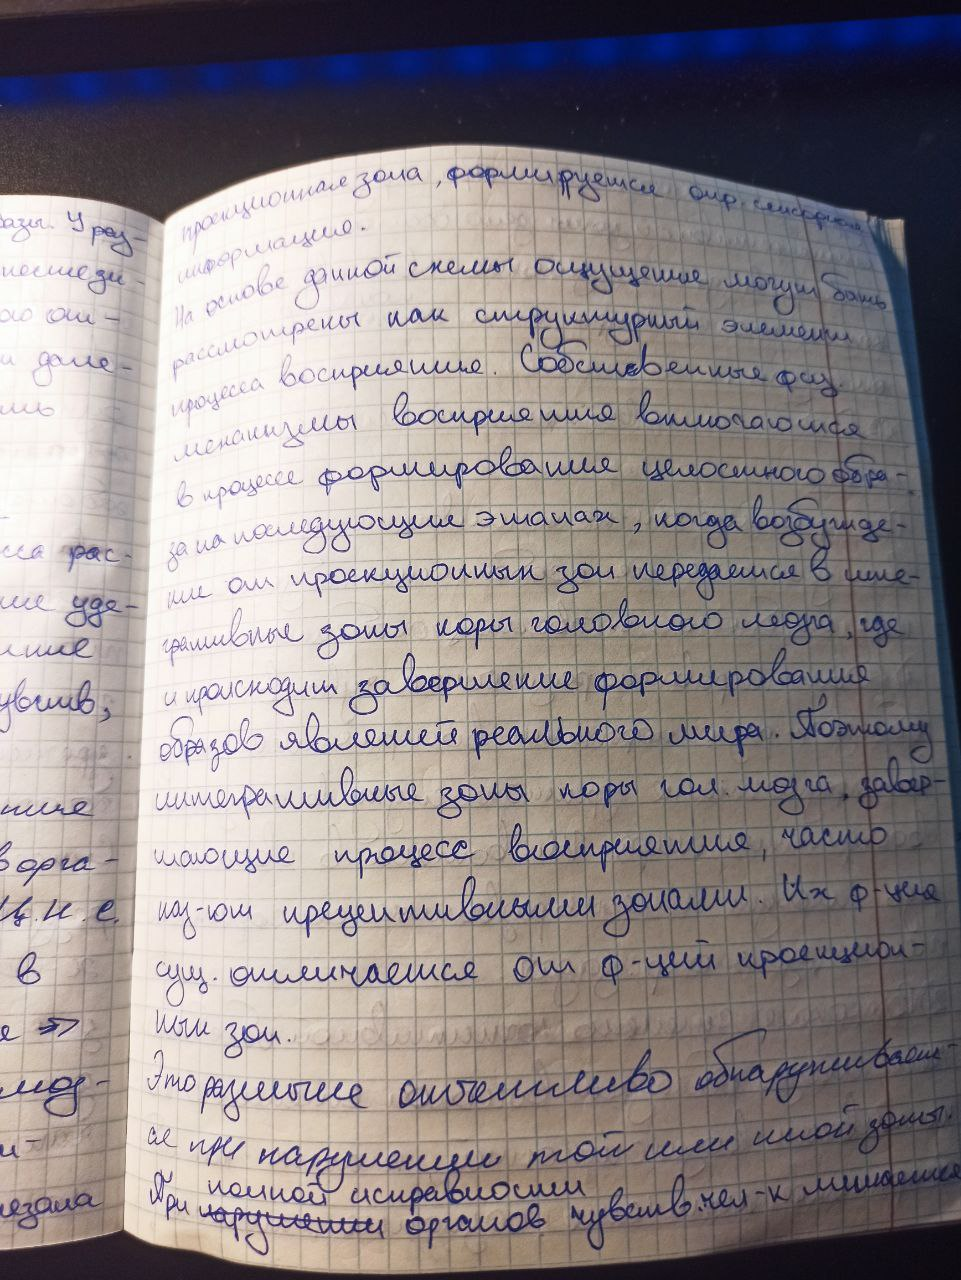 разы. У раз-
ого от-
и дале-
сса рас-
ние уде-
увств,
в орга-
Ц.Н.С.
в
е ⇒
моз-
проекционная зона, формируется опр. сенсорная
информация.
На основе данной схемы ощущение могут быть
рассмотрены как структурный элемент
процесса восприятие. Собственные физ.
механизмы восприятия включаются
в процесс формирования целостного обра-
за на последующих этапах, когда возбужде-
ние от проекционных зон передается в инте-
гративные зоны коры головного мозга, где
и происходит завершение формирования
образов явлений реального мира. Поэтому
интегративные зоны коры гол. мозга, завер-
шающие процесс восприятие, часто
наз-ют прецептивными зонами. Их ф-ция
сущ. отличается от ф-ций проекцион-
ных зон.
Это различие отчетливо обнаруживает-
ся при нарушении той или иной зоны.
полной исправности
При нарушении органов чувств. чел-к лишается